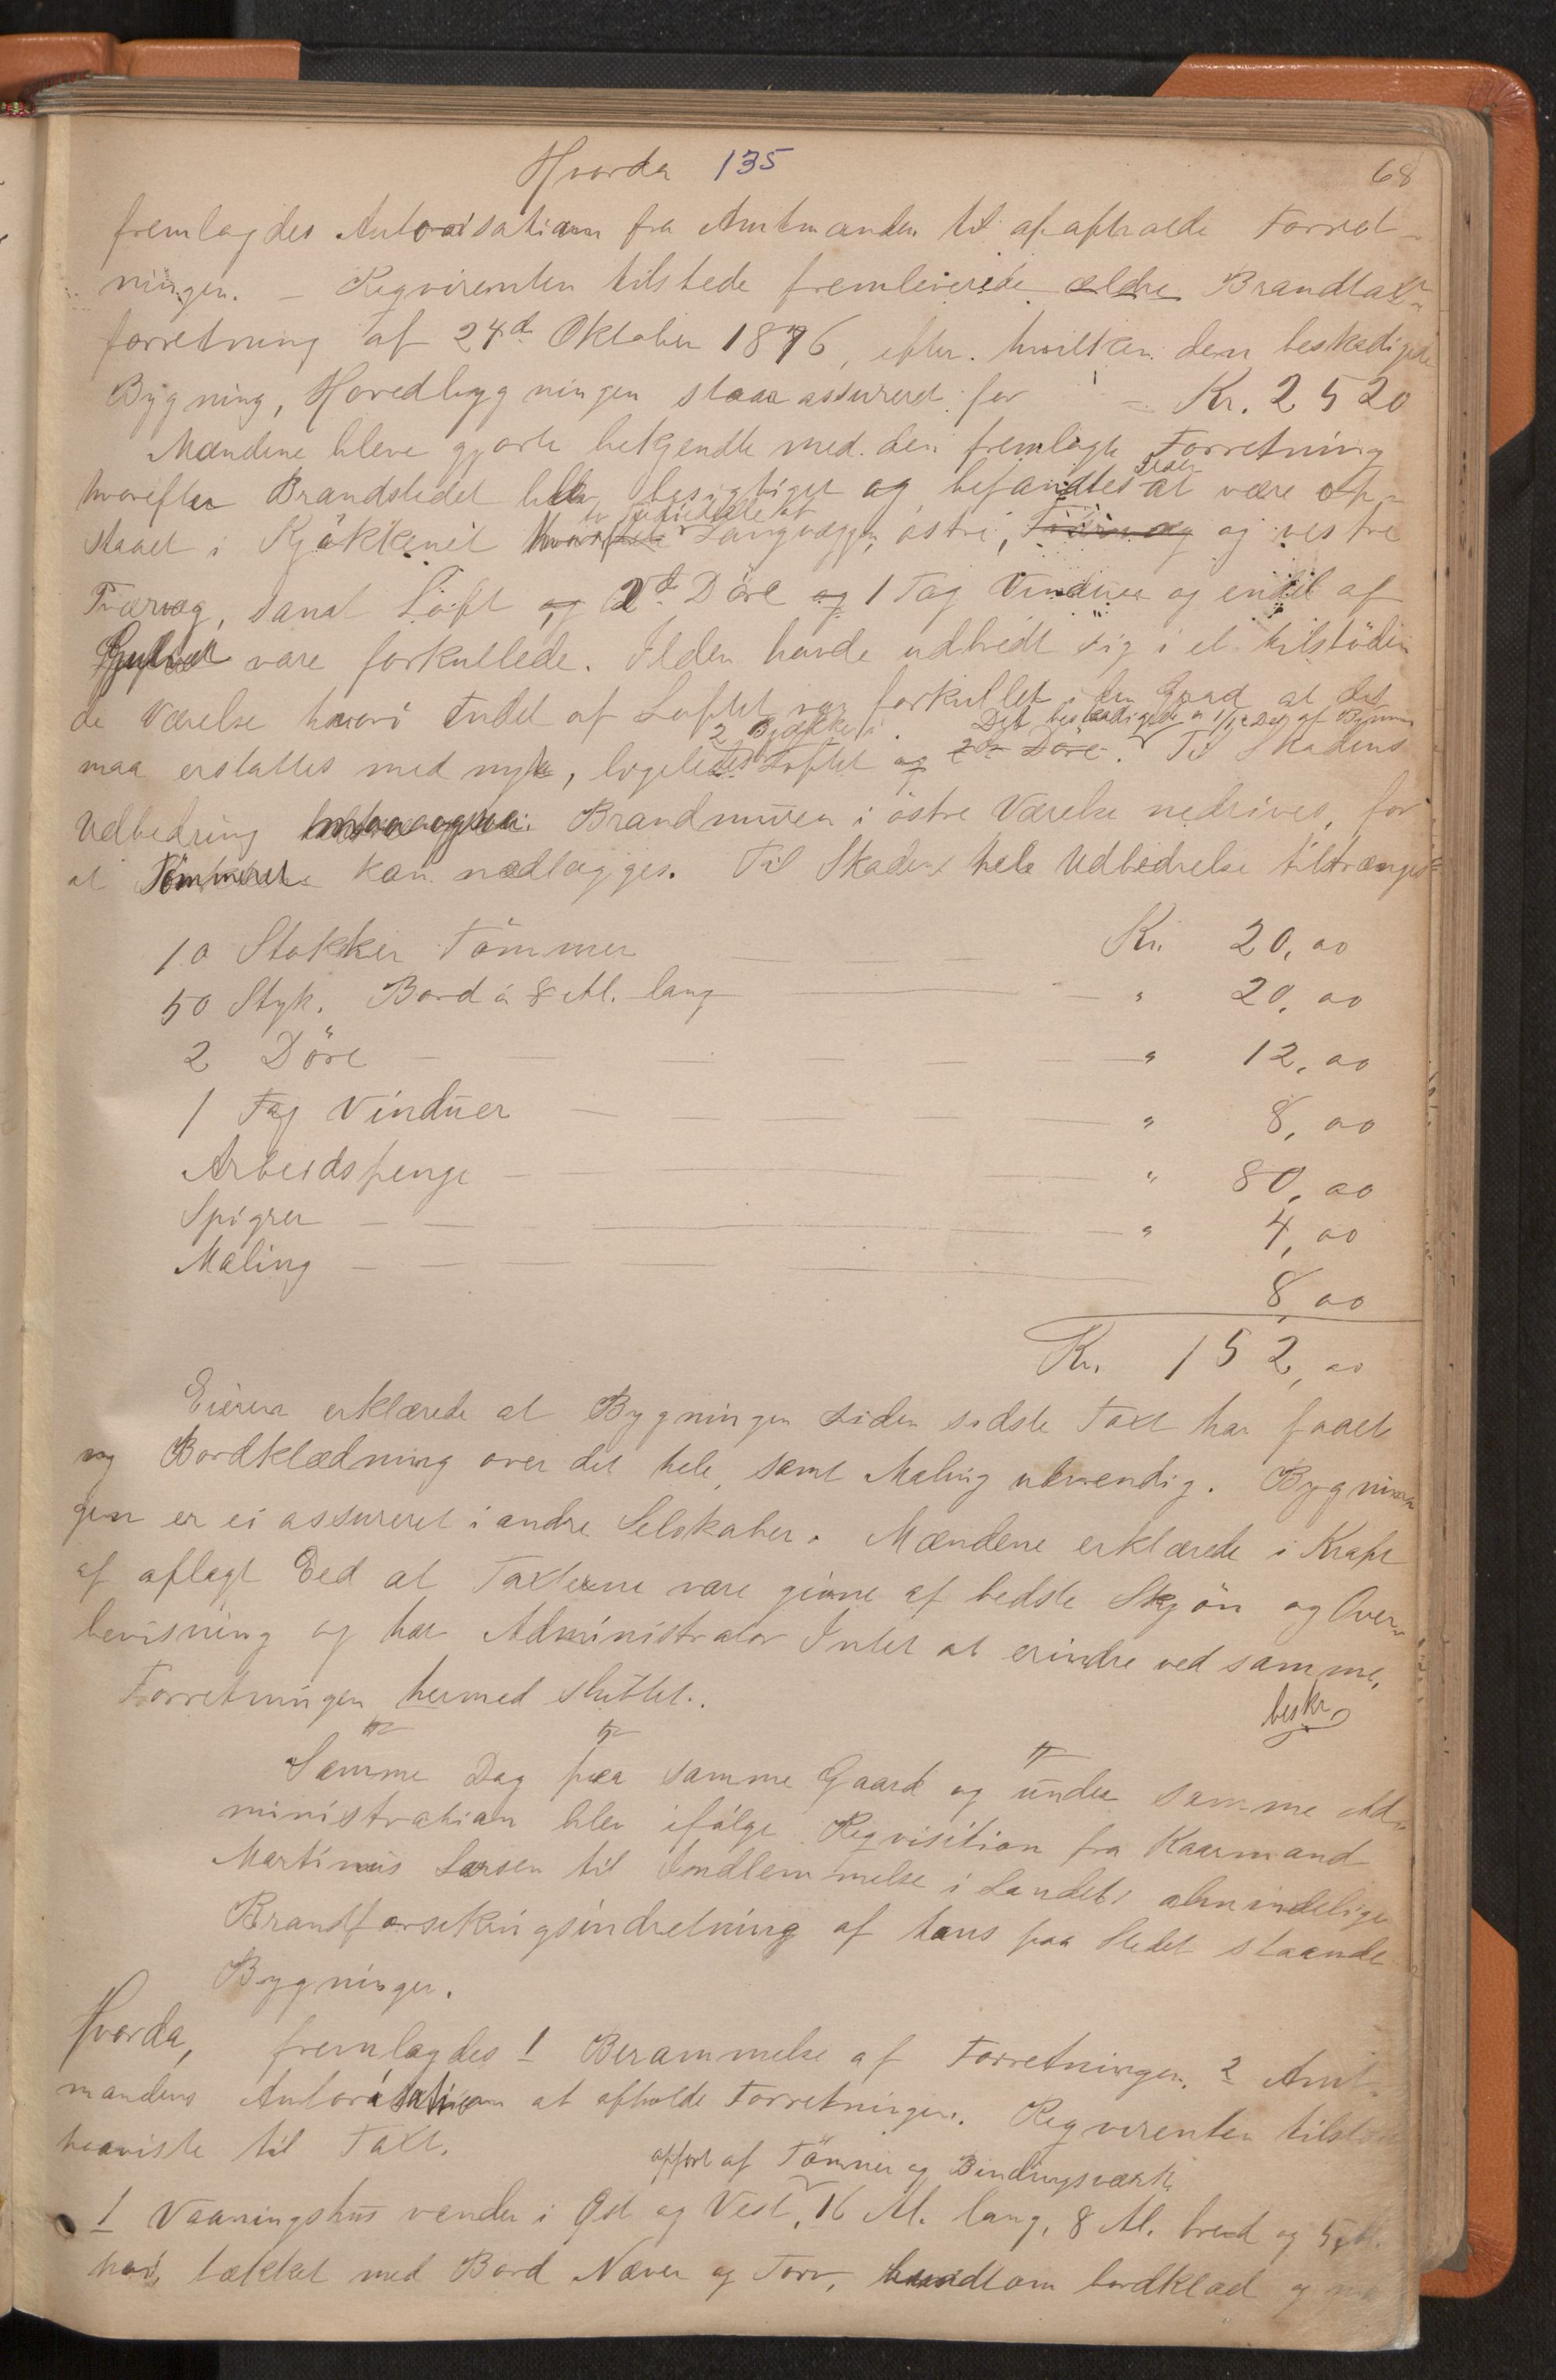 Hvorda 135 68
fremlagdes Autorisation fra Amtmanden til at afholde Forret-
ningen. - Reqvirenten tilstede fremleverede ældre Brandtaxt-
forretning af 24de Oktober 1876, efter hvilken den beskadigede
Bygning, Hovedbygningen staar assureret for - Kr. 2520
Mændene bleve gjorte bekjendte med den fremlagte Forretning
hvorefter Brandstedet blev besigtiget og befandtes Ilden at være op-
staaet i Kjökkenet Langvæggen, östre, Tværvæg og vestre
Tværvæg, samt Loft og 2de Döre og 1 Fag Vinduer og endel af
Gulvet vare forkullede. Ilden havde udbredt sig i et tilstöden
de Værelse hvori Endel af Loftet var forkullet i den Grad at det
2 Bjælker i Det beskadigede er 1/12 Del af Bygningen
maa erstattes med nyt, ligeledes Loftet og 2de Döre. Til Skadens
Udbedring maa ogsaa Brandmuren i östre Værelse nedrives, for
at Tömmeret kan nedlægges. Til Skadens hele Udbedrelse tiltrænges
10 Stokker Tömmer Kr. 20,00
50 Styk. Bord á 8 Al. lang " 20,00
2 Döre " 12,00
1 Fag Vinduer " 8,00
Arbeidspenge " 80,00
Spigrer " 4,00
Maling 8,00
Kr. 152,00
Eieren erklærede at Bygningen siden sidste Taxt har faaet
ny Bordklædning over det hele, samt Maling udvendig. Bygnin
gen er ei assureret i andre Selskaber. Mændene erklærede i Kraft
af aflagt Eed at Taxterne vare givne af bedste Skjön og Over-
bevisning og har Administrator Intet at erindre ved samme,
Forretningen hermed sluttet.
beskr
Samme Dag paa samme Gaard og under samme Ad-
ministration blev ifölge Reqvisition fra Kaarmand
Martinus Larsen til Indlemmelse i Landets almindelige
Brandforsikringsindretning af hans paa Stedet staaende
Bygninger.
Hvorda, fremlagdes 1 Berammelse af Forretningen. 2 Amt-
mandens Autorisation at afholde Forretningen. Reqvirenten tilstede
paaviste til Taxt.
opfört af Tömmer og Bindingsværk
1 Vaaningshus vender i Öst og Vest, 16 Al. lang, 8 Al. bred og 5 Al.
höi, tækket med Bord Næver og Torv, rundtom bordklæd og